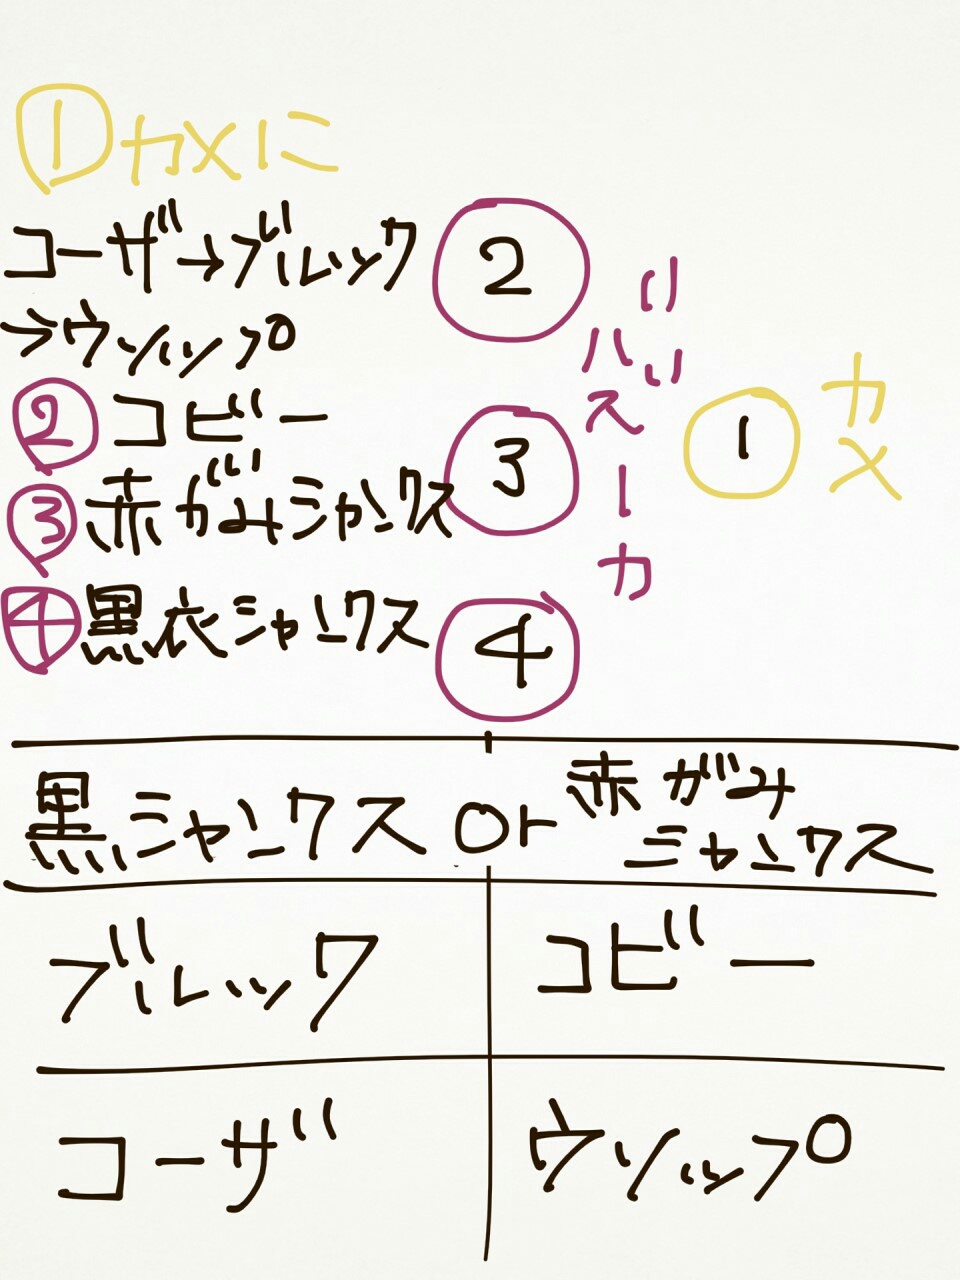 ①カメに
コーザ→ブルック
→ウソップ
②コビー
③赤がみシャンクス
④黒衣シャンクス
2
3
4
バズーカ
1
カメ
黒シャンクス or 赤がみシャンクス
ブルック コビー
コーザ ウソップ